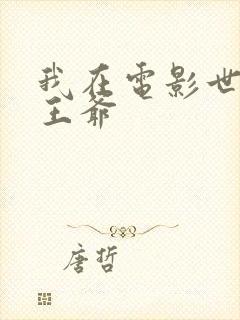 我在電影世
王爺
唐哲